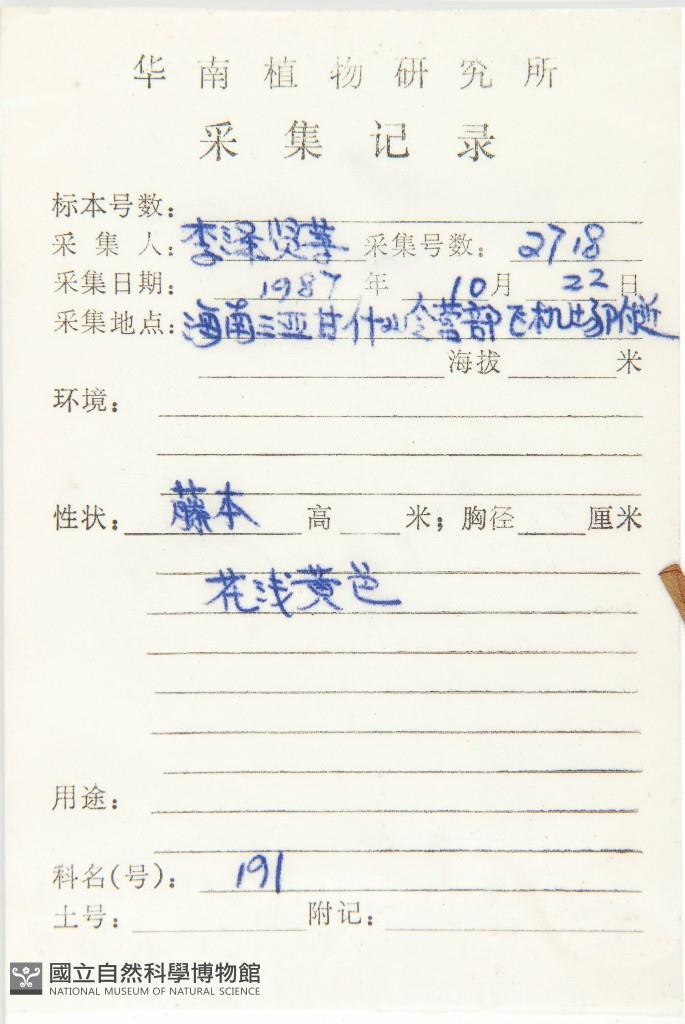 华南植物研究所
采集记录
标本号数：
采集人：李泽贤等 采集号数：2718
采集日期：1987年10月22日
采集地点：海南三亚甘什岭营部飞机场附近
海拔 米
环境：
性状：藤本 高 米；胸径 厘米
花浅黄色
用途：
科名(号)：191
土号： 附记：
國立自然科學博物館
NATIONAL MUSEUM OF NATURAL SCIENCE